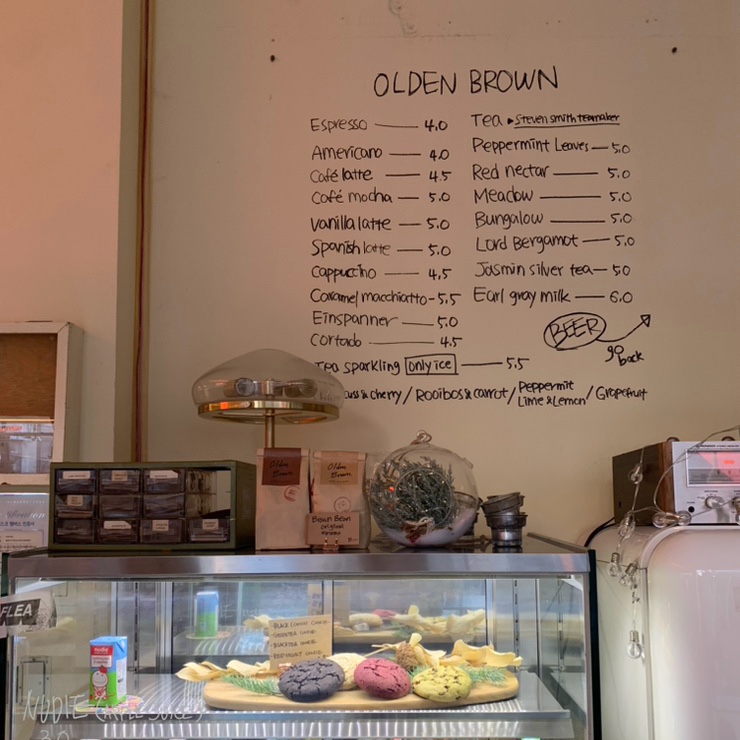 OLDEN BROWN
Espresso 4.0
Americano 4.0
Café latte 4.5
Café mocha 5.0
Vanilla latte 5.0
Spanish latte 5.0
Cappuccino 4.5
Caramel macchiatto 5.5
Einspanner 5.0
Cortado 4.5
Tea Steven smith teamaker
Peppermint Leaves 5.0
Red nectar 5.0
Meadow 5.0
Bungalow 5.0
Lord Bergamot 5.0
Jasmin silver tea 5.0
Earl gray milk 6.0
BEER
go back
Tea sparkling only ice 5.5
& cherry / Rooibos & carrot / Peppermit Lime & Lemon / Grapefruit
Olden Brown
Olden Brown
Brown Bean
original
FLEA
NUDIE